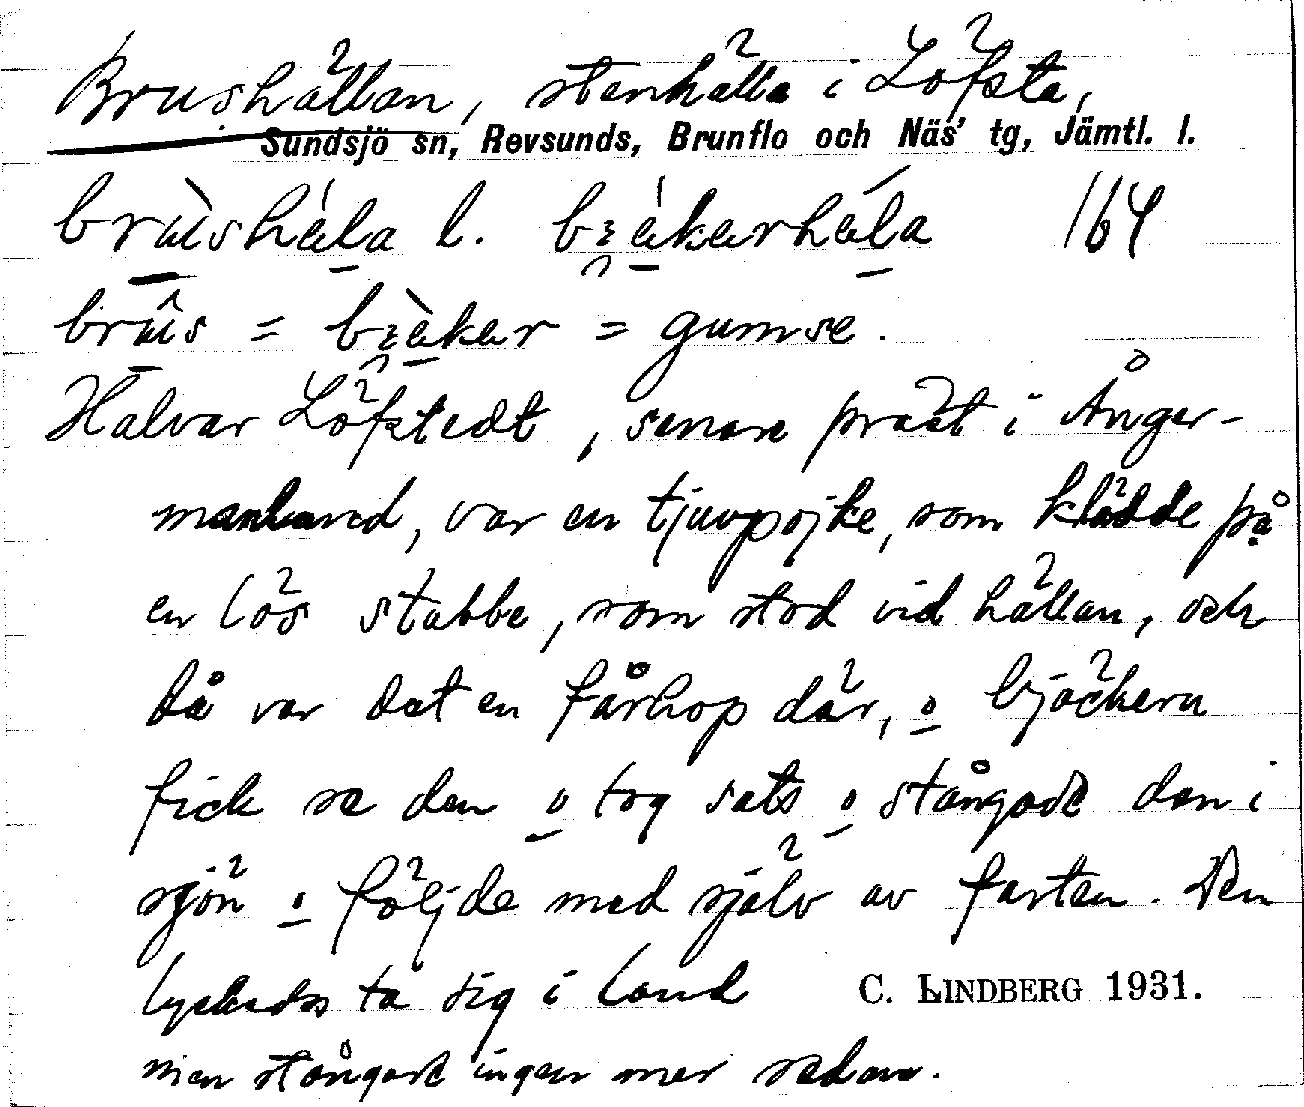 Brushällan, stenhälla i Löfsta,
Sundsjö sn, Revsunds, Brunflo och Näs' tg, Jämtl. l.
brùshála l. brὲkarhála 164
brûs = brὲkar = gumse.
Halvar Löfstedt, senare präst i Ånger-
manland, var en tjuvpojke, som klädde på
en lös stabbe, som stod vid hällan, och
då var det en fårhop där, o bjäckern
fick se den o tog sats o stångade den i
sjön o följde med själv av farten. Den
lyckades ta sig i land C. LINDBERG 1931.
men stångade ingen mer sedan.